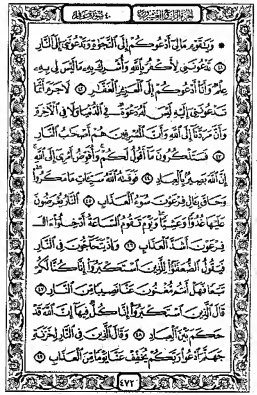 وَيَٰقَوْمِ مَا لِىٓ أَدْعُوكُمْ إِلَى ٱلنَّجَوٰةِ وَتَدْعُونَنِىٓ إِلَى ٱلنَّارِ
٤١ تَدْعُونَنِى لِأَكْفُرَ بِٱللَّهِ وَأُشْرِكَ بِهِۦ مَا لَيْسَ لِى بِهِۦ
عِلْمٌ وَأَنَا۠ أَدْعُوكُمْ إِلَى ٱلْعَزِيزِ ٱلْغَفَّٰرِ ٤٢ لَا جَرَمَ أَنَّمَا
تَدْعُونَنِىٓ إِلَيْهِ لَيْسَ لَهُۥ دَعْوَةٌ فِى ٱلدُّنْيَا وَلَا فِى ٱلْءَاخِرَةِ
وَأَنَّ مَرَدَّنَآ إِلَى ٱللَّهِ وَأَنَّ ٱلْمُسْرِفِينَ هُمْ أَصْحَٰبُ ٱلنَّارِ
٤٣ فَسَتَذْكُرُونَ مَآ أَقُولُ لَكُمْ وَأُفَوِّضُ أَمْرِىٓ إِلَى ٱللَّهِ
إِنَّ ٱللَّهَ بَصِيرٌۢ بِٱلْعِبَادِ ٤٤ فَوَقَىٰهُ ٱللَّهُ سَيِّـَٔاتِ مَا مَكَرُوا۟
وَحَاقَ بِـَٔالِ فِرْعَوْنَ سُوٓءُ ٱلْعَذَابِ ٤٥ ٱلنَّارُ يُعْرَضُونَ
عَلَيْهَا غُدُوًّا وَعَشِيًّا وَيَوْمَ تَقُومُ ٱلسَّاعَةُ أَدْخِلُوٓا۟ ءَالَ
فِرْعَوْنَ أَشَدَّ ٱلْعَذَابِ ٤٦ وَإِذْ يَتَحَآجُّونَ فِى ٱلنَّارِ
فَيَقُولُ ٱلضُّعَفَٰٓؤُا۟ لِلَّذِينَ ٱسْتَكْبَرُوٓا۟ إِنَّا كُنَّا لَكُمْ
تَبَعًا فَهَلْ أَنتُم مُّغْنُونَ عَنَّا نَصِيبًا مِّنَ ٱلنَّارِ ٤٧
قَالَ ٱلَّذِينَ ٱسْتَكْبَرُوٓا۟ إِنَّا كُلٌّ فِيهَآ إِنَّ ٱللَّهَ قَدْ
حَكَمَ بَيْنَ ٱلْعِبَادِ ٤٨ وَقَالَ ٱلَّذِينَ فِى ٱلنَّارِ لِخَزَنَةِ
جَهَنَّمَ ٱدْعُوا۟ رَبَّكُمْ يُخَفِّفْ عَنَّا يَوْمًا مِّنَ ٱلْعَذَابِ ٤٩
٤٧٢